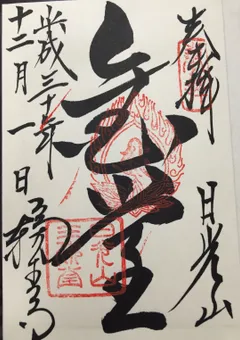 奉拝
日光山
金堂
平成三十年
十二月一日
輪王寺